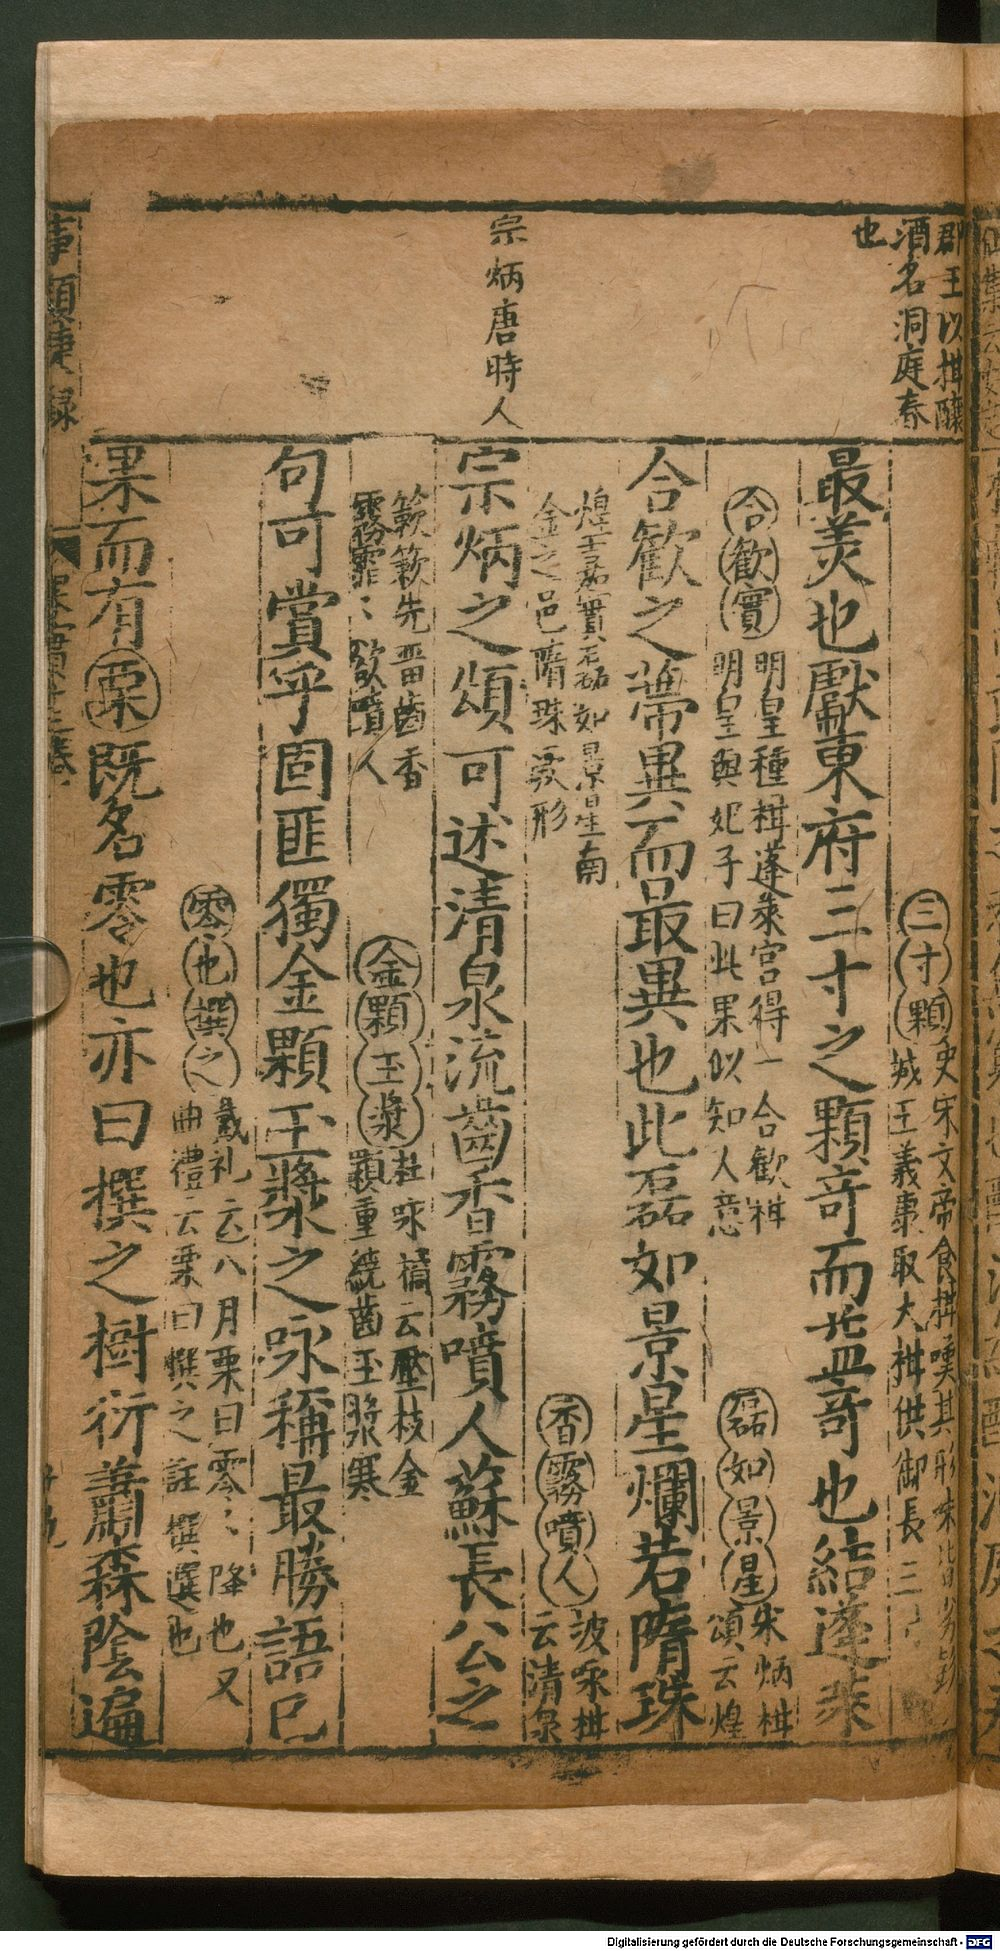 郡王以柑釀
酒名洞庭春
也
宗炳唐時人
三寸顆 史宋文帝食柑嘆其形味皆劣彭
城王義康取大柑供御長三寸
最美也獻東府三寸之顆竒而益竒也結蓬萊
合歡實 明皇種柑蓬萊宫得一合歡柑
明皇與妃子曰此果似知人意
磊如景星 宋炳柑
頌云煌
合歡之蒂異而最異也此磊如景星爛若隋珠
煌嘉實磊如景星南
金之邑隋珠䘮形
香霧噴人 波咏柑
云清泉
宗炳之頌可述清泉流齒香霧噴人蘇長公之
簌簌先畨齒香
霧霏〻欲噴人
金顆玉漿 杜咏橘云壓枝金
顆重繞齒玉漿寒
句可賞乎固匪獨金顆玉漿之咏稱最勝語已
零也撰之 戴礼云八月栗曰零〻降也又
曲禮云栗曰撰之註撰選也
果而有栗既名零也亦曰撰之樹衍蕭森陰遍
事類捷錄